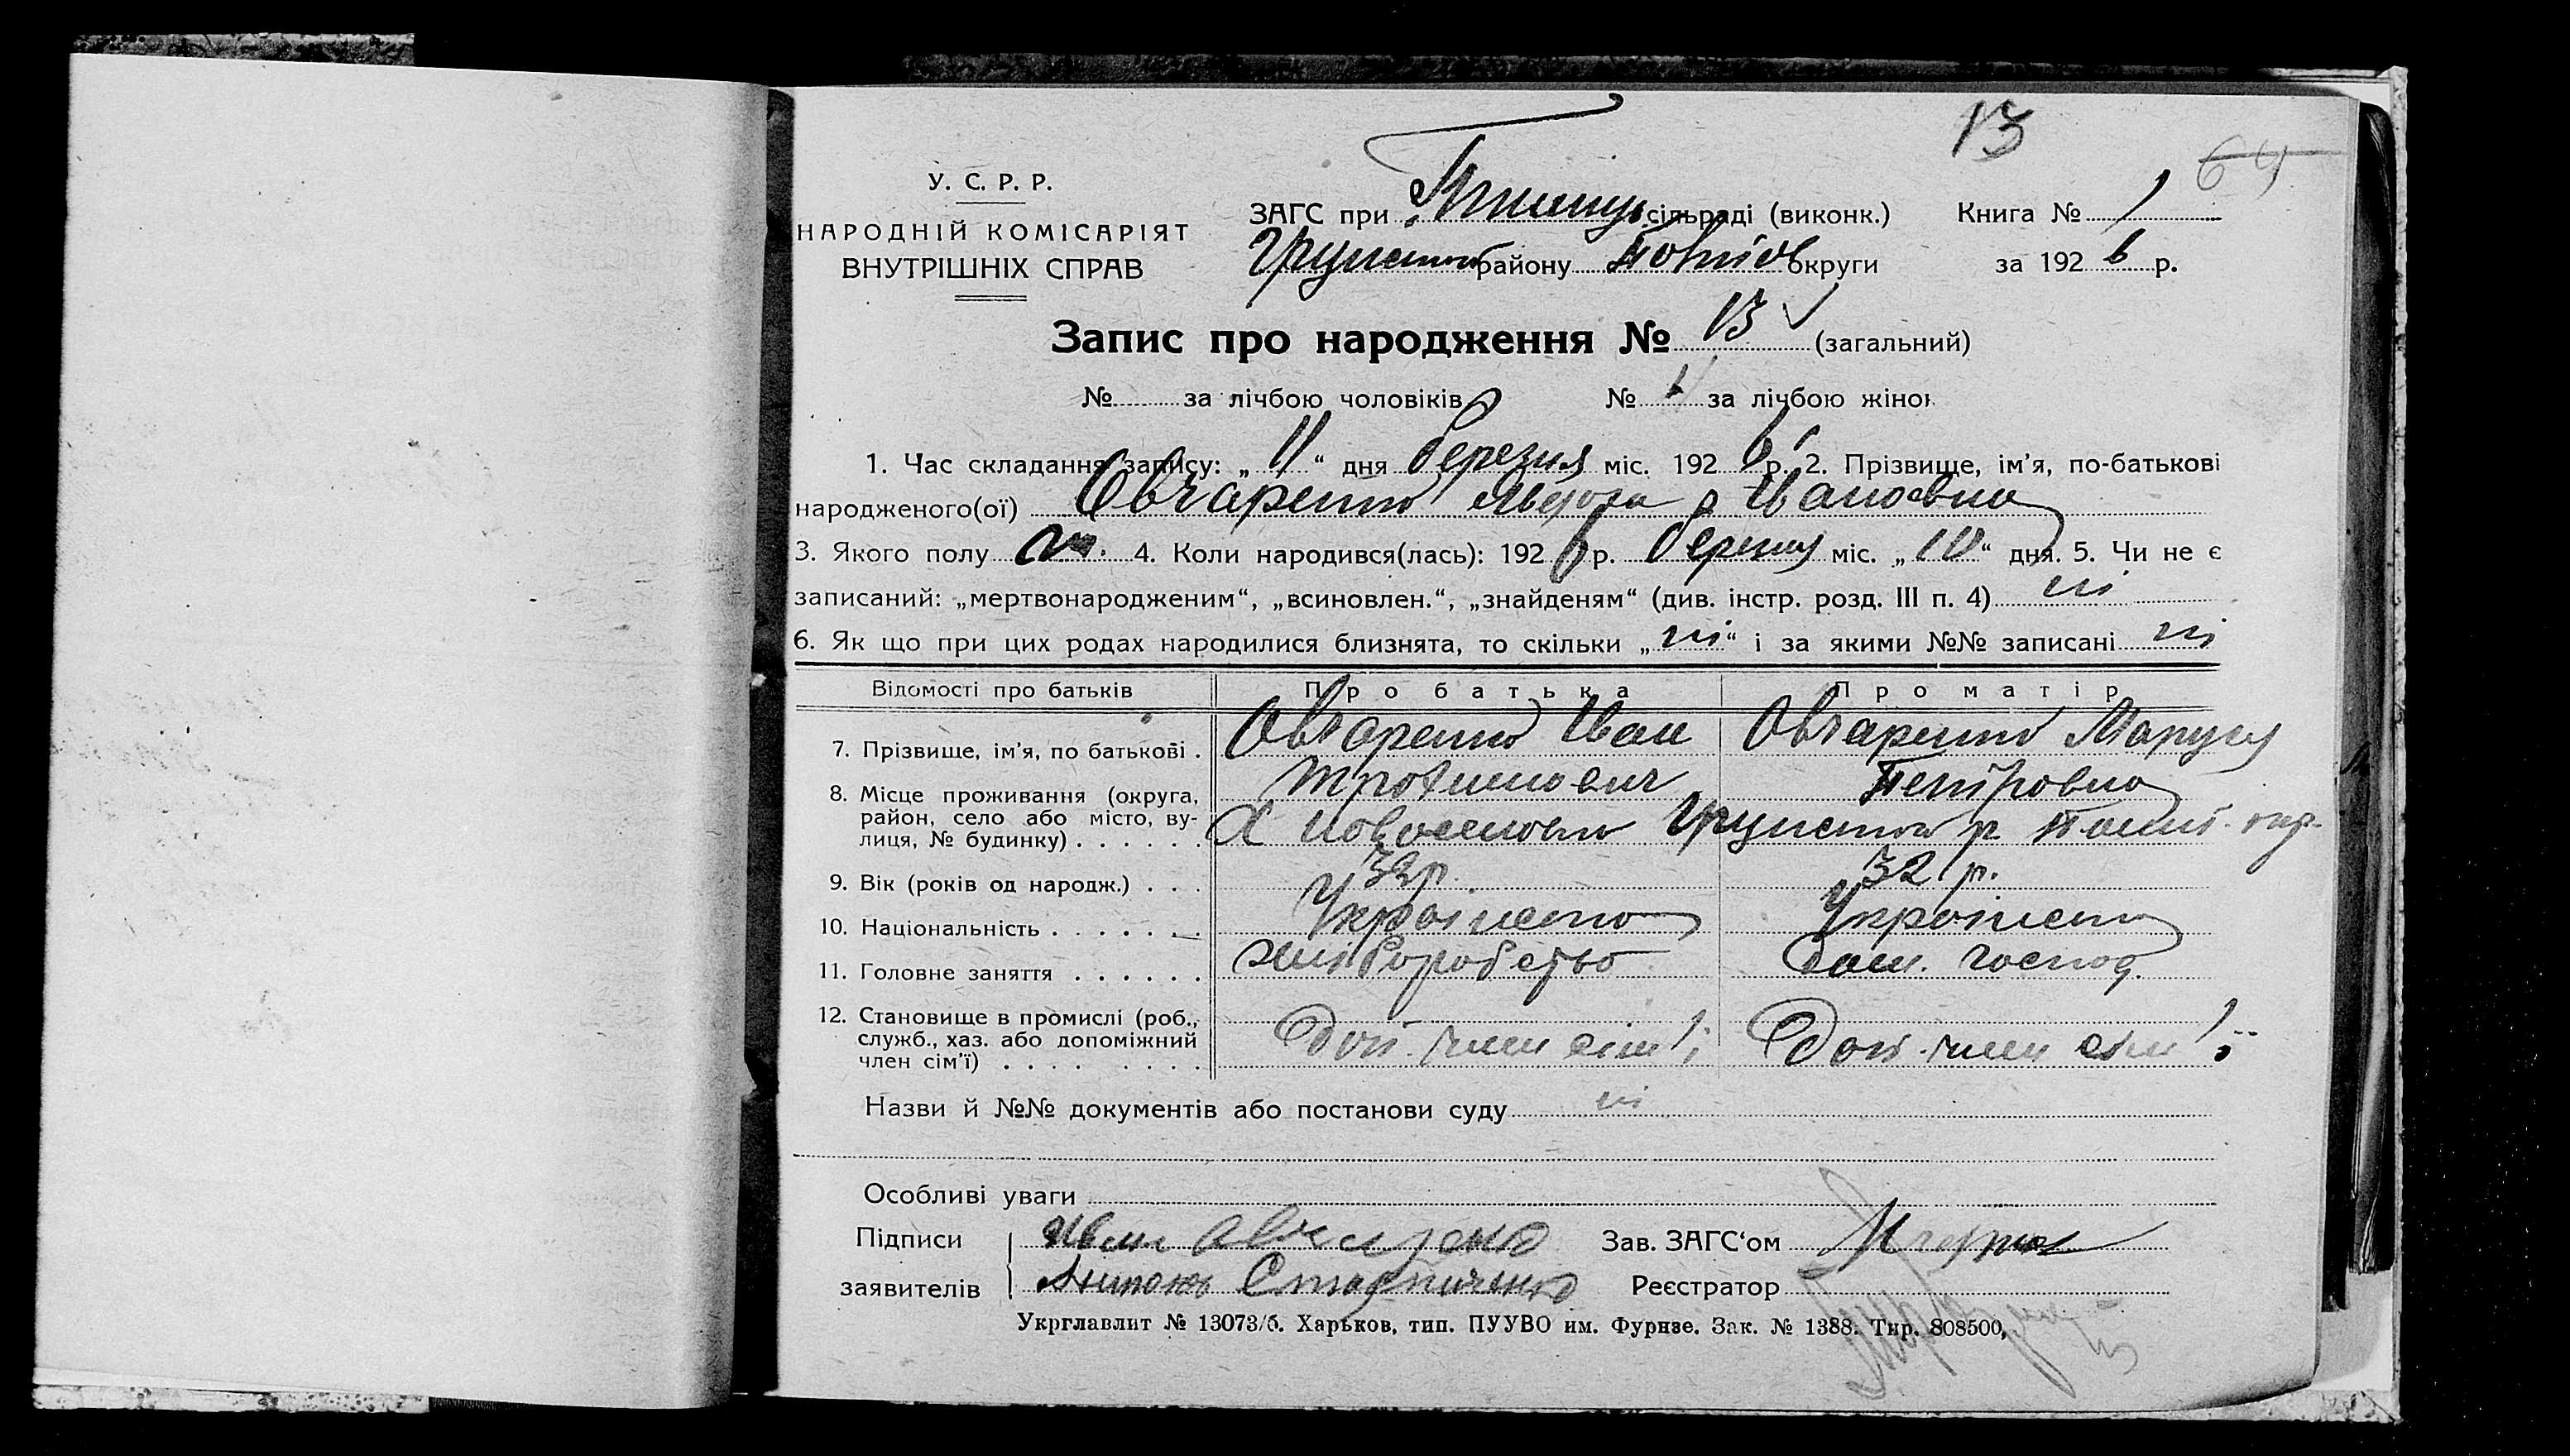 13
64
У. С. Р. Р.
НАРОДНІЙ КОМІСАРІЯТ
ВНУТРІШНІХ СПРАВ
ЗАГС при сільраді (виконк.) Книга № 1
Грунськ району Полтов округи за 192 6 р.
Запис про народження № 13 (загальний)
№ за лічбою чоловіків № за лічбою жінок
1. Час складання запису: „ 11 “ дня березня міс. 192 6 р. 2. Прізвище, ім’я, по-батькові
народженого(ої) Овчаренко Явдоха Івановна
3. Якого полу ж. 4. Коли народився(лась): 192 6 р. березня міс. „ 10 “ дня. 5. Чи не є
записаний: „мертвонародженим“, „всиновлен.“, „знайденям“ (див. інстр. розд. III п. 4) ні
6. Як що при цих родах народилися близнята, то скільки „ ні “ і за якими №№ записані ні
Відомості про батьків Про батька Про матір
7. Прізвище, ім’я, по батькові . Овчаренко Іван Трохимович Овчаренко Маруся Петровна
8. Місце проживання (округа, район, село або місто, вулиця, № будинку) . . . . . . Х Новоселовка Грунського р. Полт. окр.
9. Вік (років од народж.) . . . 32 р. 32 р.
10. Національність . . . . . . . Українець Українка
11. Головне заняття . . . . . . хліборобство Дом. господ.
12. Становище в промислі (роб., служб., хаз. або допоміжний член сім’ї) . . . . . . . . Доп. член сім’ї Доп. член сім’ї
Назви й №№ документів або постанови суду ні
Особливі уваги
Підписи заявителів Иван Овчаренко Зав. ЗАГС‘ом
Реєстратор
Укрглавлит № 13073/б. Харьков, тип. ПУУВО им. Фурнзе. Зак. № 1388. Тир. 808500,